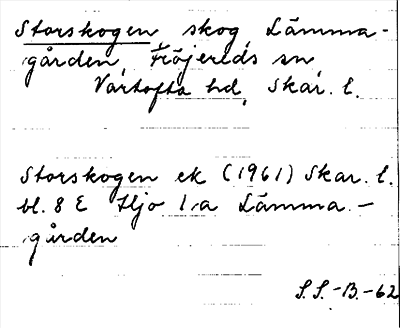 Storskogen skog Lämma-
gården, Fröjereds sn,
Vartofta hd, Skar. l.
Storskogen ek (1961) Skar. l.
bl. 8 E Hjo 1:a Lämma-
gården
S.S.-B.-62